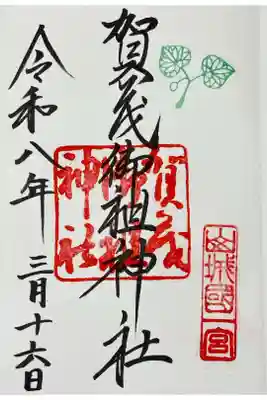 山城國一宮
賀茂御祖神社
賀茂御祖神社
令和八年 三月十六日